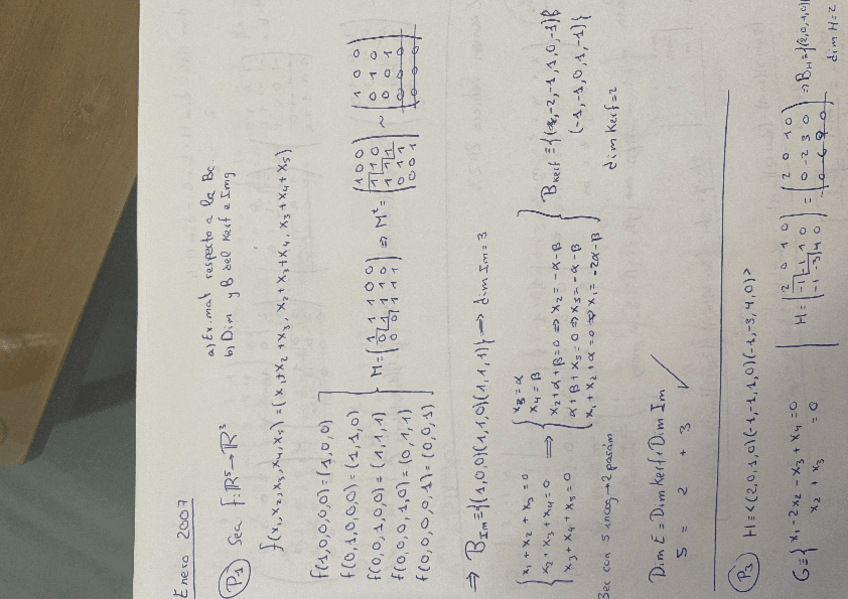 Enero 2007
P1 Sea f: ℝ⁵→ℝ³
a) Ex. mat respecto a la Bc.
b) Dim y B del Kerf e Img
f(x₁,x₂,x₃,x₄,x₅)=(x₁+x₂+x₃, x₂+x₃+x₄, x₃+x₄+x₅)
f(1,0,0,0,0)=(1,0,0)
f(0,1,0,0,0)=(1,1,0)
f(0,0,1,0,0)=(1,1,1)
f(0,0,0,1,0)=(0,1,1)
f(0,0,0,0,1)=(0,0,1)
M=
1 1 1 0 0
0 1 1 1 0
0 0 1 1 1
⇒ Mᵗ=
1 0 0
1 1 0
1 1 1
0 1 1
0 0 1
~
1 0 0
0 1 0
0 0 1
0 0 0
0 0 0
⇒ B Im={(1,0,0)(1,1,0)(1,1,1)} → dim Im=3
x₁+x₂+x₃=0
x₂+x₃+x₄=0
x₃+x₄+x₅=0
3ec con 5 incog→2 parám
⇒
x₃=α
x₄=β
x₂+α+β=0 ⇒ x₂=-α-β
α+β+x₅=0 ⇒ x₅=-α-β
x₁+x₂+α=0 ⇒ x₁=-2α-β
B Kerf={(-2,-1,1,0,-1)
(-1,-1,0,1,-1)}
dim Kerf=2
Dim E = Dim Kerf + Dim Im
5 = 2 + 3 ✓
P3 H=<(2,0,1,0)(-1,-1,1,0)(-1,-3,4,0)>
G={
x₁-2x₂-x₃+x₄=0
x₂+x₃=0
H=
2 0 1 0
-1 -1 1 0
-1 -3 4 0
=
2 0 1 0
0 -2 3 0
⇒ B_H={(2,0,1,0)
dim H=2